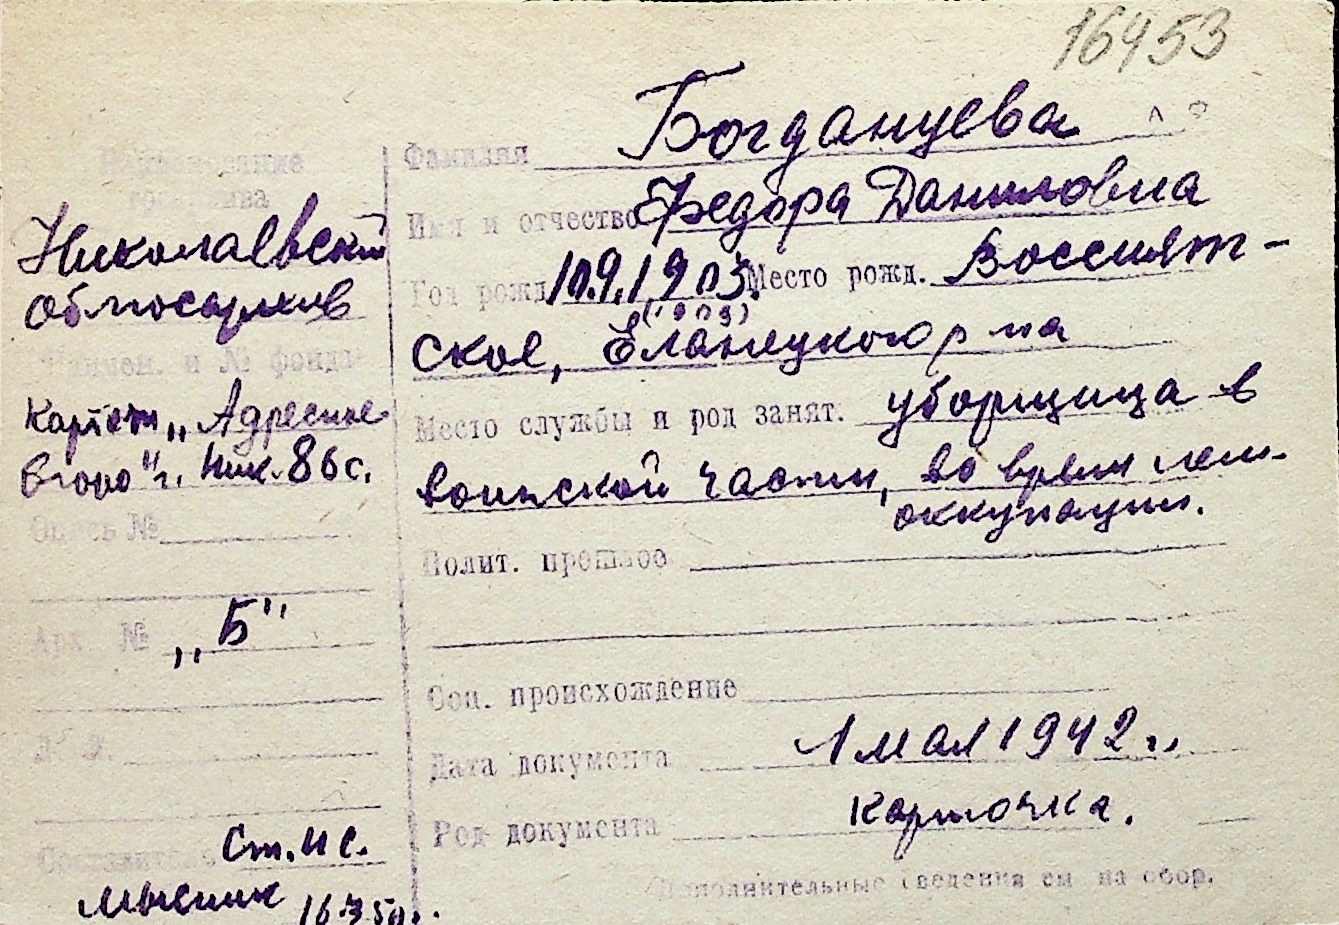 16453
Фамилия Богдануева
Имя и отчество Федора Даниловна
Год рожд. 10.9.1903. Место рожд. Воссият-
(1903)
ское, Еланецкого р на
Место службы и род занят. уборщица в
воинской части, во время нем.
оккупации.
Полит. прошлое
Соц. происхождение
Дата документа 1 мая 1942 г.
Род документа карточка.
Дополнительные сведения см на обор.
Наименование
госархива
Николаевский
облгосархив
Наимен. и № фонда
Картот „Адресное
бюро" г. Ник. 86с.
Опись №
Арх №
„Б"
Л. Л.
Составитель Ст. н с.